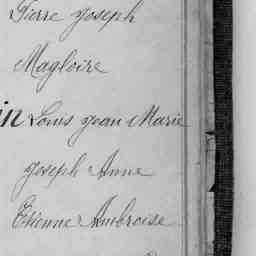 Pierre Joseph
Magloire
in Louis Jean Marie
Joseph Anne
Etienne Ambroise